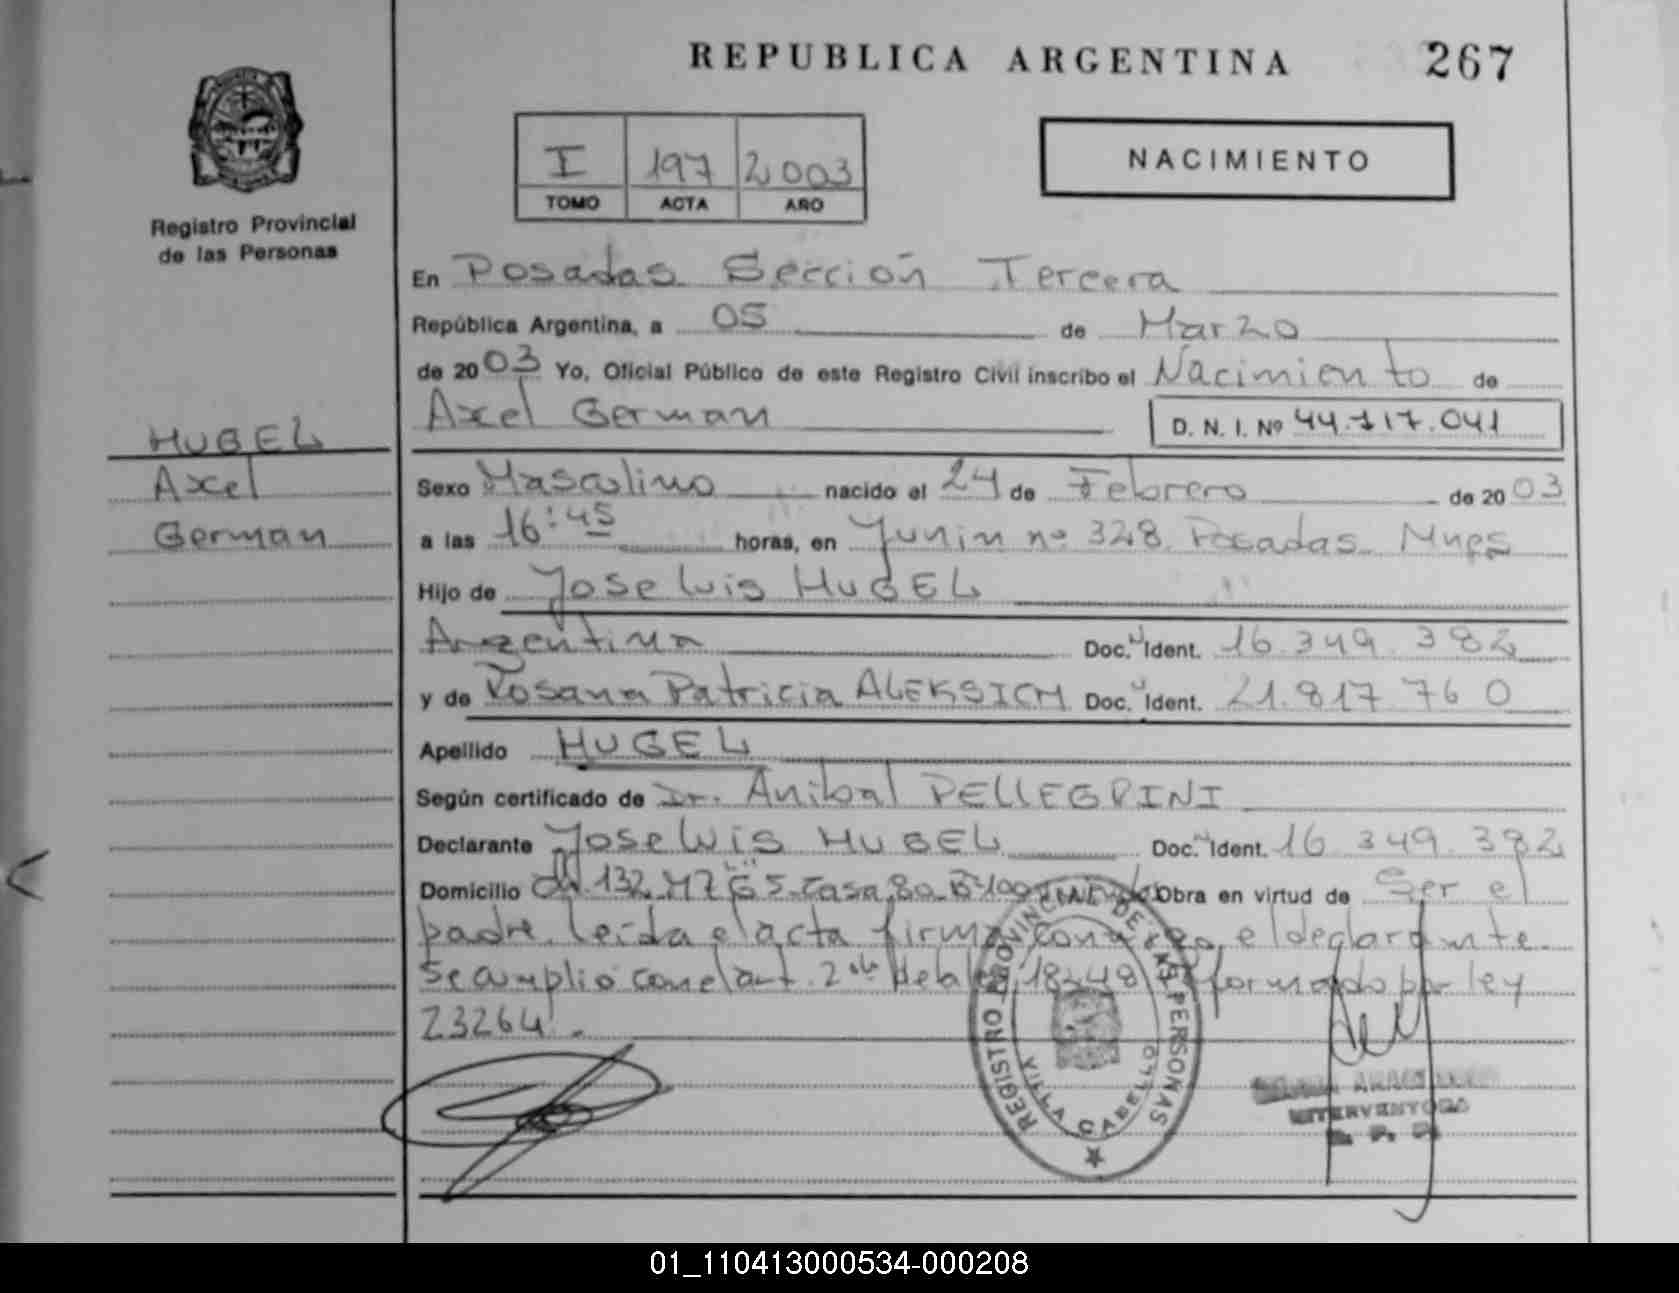 REPUBLICA ARGENTINA 267
I 197 2003
TOMO ACTA AÑO
NACIMIENTO
Registro Provincial
de las Personas
HUGEL
Axel
German
En Posadas Sección Tercera
República Argentina, a 05 de Marzo
de 2003 Yo, Oficial Público de este Registro Civil inscribo el Nacimiento de
Axel German D. N. I. Nº 44.717.041
Sexo Masculino nacido el 24 de Febrero de 2003
a las 16:45 horas, en Junin nº 328 Posadas Mnes
Hijo de Jose Luis HUGEL
Argentina Doc. Ident. 16.349.382
y de Rosana Patricia ALEKSICH Doc. Ident. 21.817.760
Apellido HUGEL
Según certificado de Dr. Anibal PELLEGRINI
Declarante Jose Luis HUGEL Doc. Ident. 16 349.382
Domicilio Ch. 132 MZ Casa 80 Obra en virtud de Ser el
padre leida el acta firma conmigo el declarante
se cumplio con el art. 2 de la 18248 por ley
23264.
REGISTRO PROVINCIAL DE LAS PERSONAS
VILLA CABELLO
INTERVENTORA
01_110413000534-000208